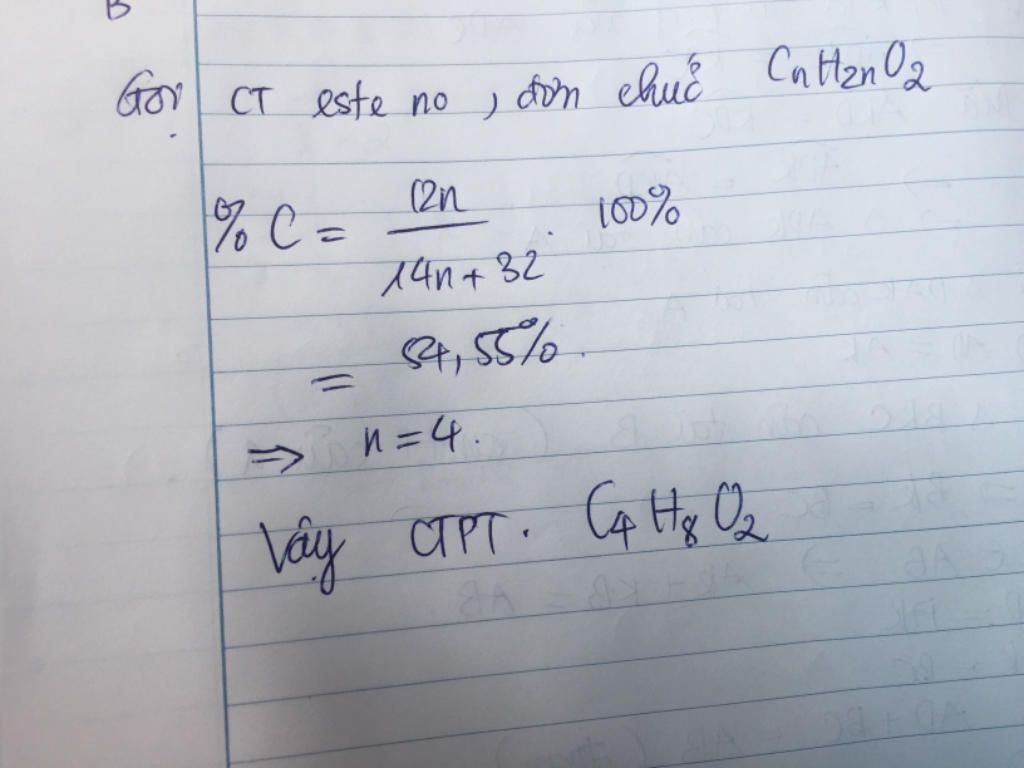 B
Gọi CT este no, đơn chức CnH2nO2
%C = 12n / 14n + 32 . 100%
= 54,55%.
⇒ n = 4.
Vậy CTPT. C4H8O2